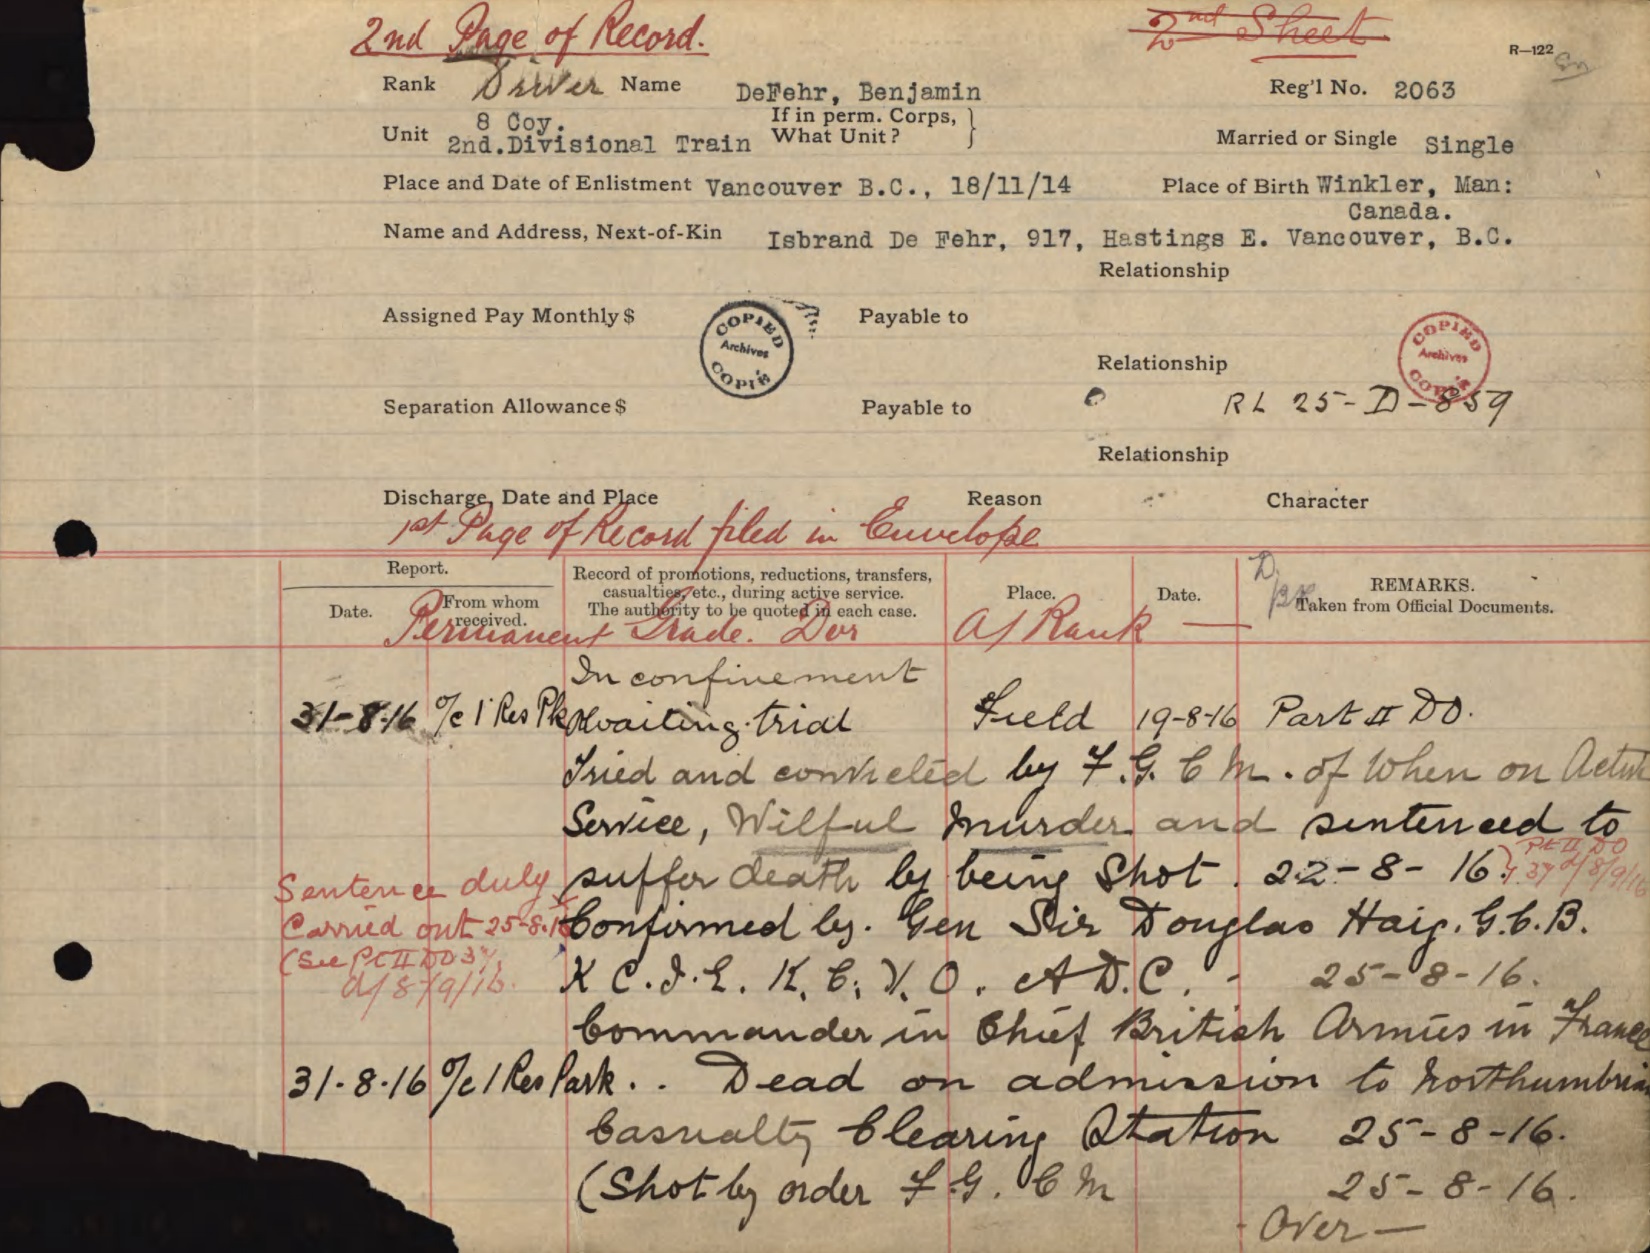 2nd Page of Record.
2nd Sheet
R—122
Rank Driver Name DeFehr, Benjamin Reg'l No. 2063
Unit 8 Coy. 2nd.Divisional Train If in perm. Corps, What Unit? } Married or Single Single
Place and Date of Enlistment Vancouver B.C., 18/11/14 Place of Birth Winkler, Man:
Canada.
Name and Address, Next-of-Kin Isbrand De Fehr, 917, Hastings E. Vancouver, B.C.
Relationship
Assigned Pay Monthly $ COPIED Archives COPIÉ Payable to COPIED Archives COPIÉ
Relationship
Separation Allowance $ Payable to RL 25-D-859
Relationship
Discharge, Date and Place Reason Character
1st Page of Record filed in Envelope
Report.
Date.
From whom received.
Record of promotions, reductions, transfers,
casualties, etc., during active service.
The authority to be quoted in each case.
Place.
Date.
D.
REMARKS.
Taken from Official Documents.
Permanent Grade. Dvr A/ Rank —
In confinement
31-8-16 o/c 1 Res Pk Awaiting trial Field 19-8-16 Part II DO.
Tried and convicted by F.G.C.M. of When on Active
Service, Wilful Murder and sentenced to
suffer death by being Shot. 22-8-16.
Pt II DO
37 d/8/9/16
Sentence duly
Carried out 25-8-16
(See Pt II DO 37
d/8/9/16.
Confirmed by. Gen Sir Douglas Haig. G.C.B.
K C.I.E. K.C.V.O. A D.C. - 25-8-16.
Commander in Chief British Armies in France
31-8-16 o/c 1 Res Park. . Dead on admission to Northumbrian
Casualty Clearing Station 25-8-16.
(Shot by order F.G.C M 25-8-16.
- Over —